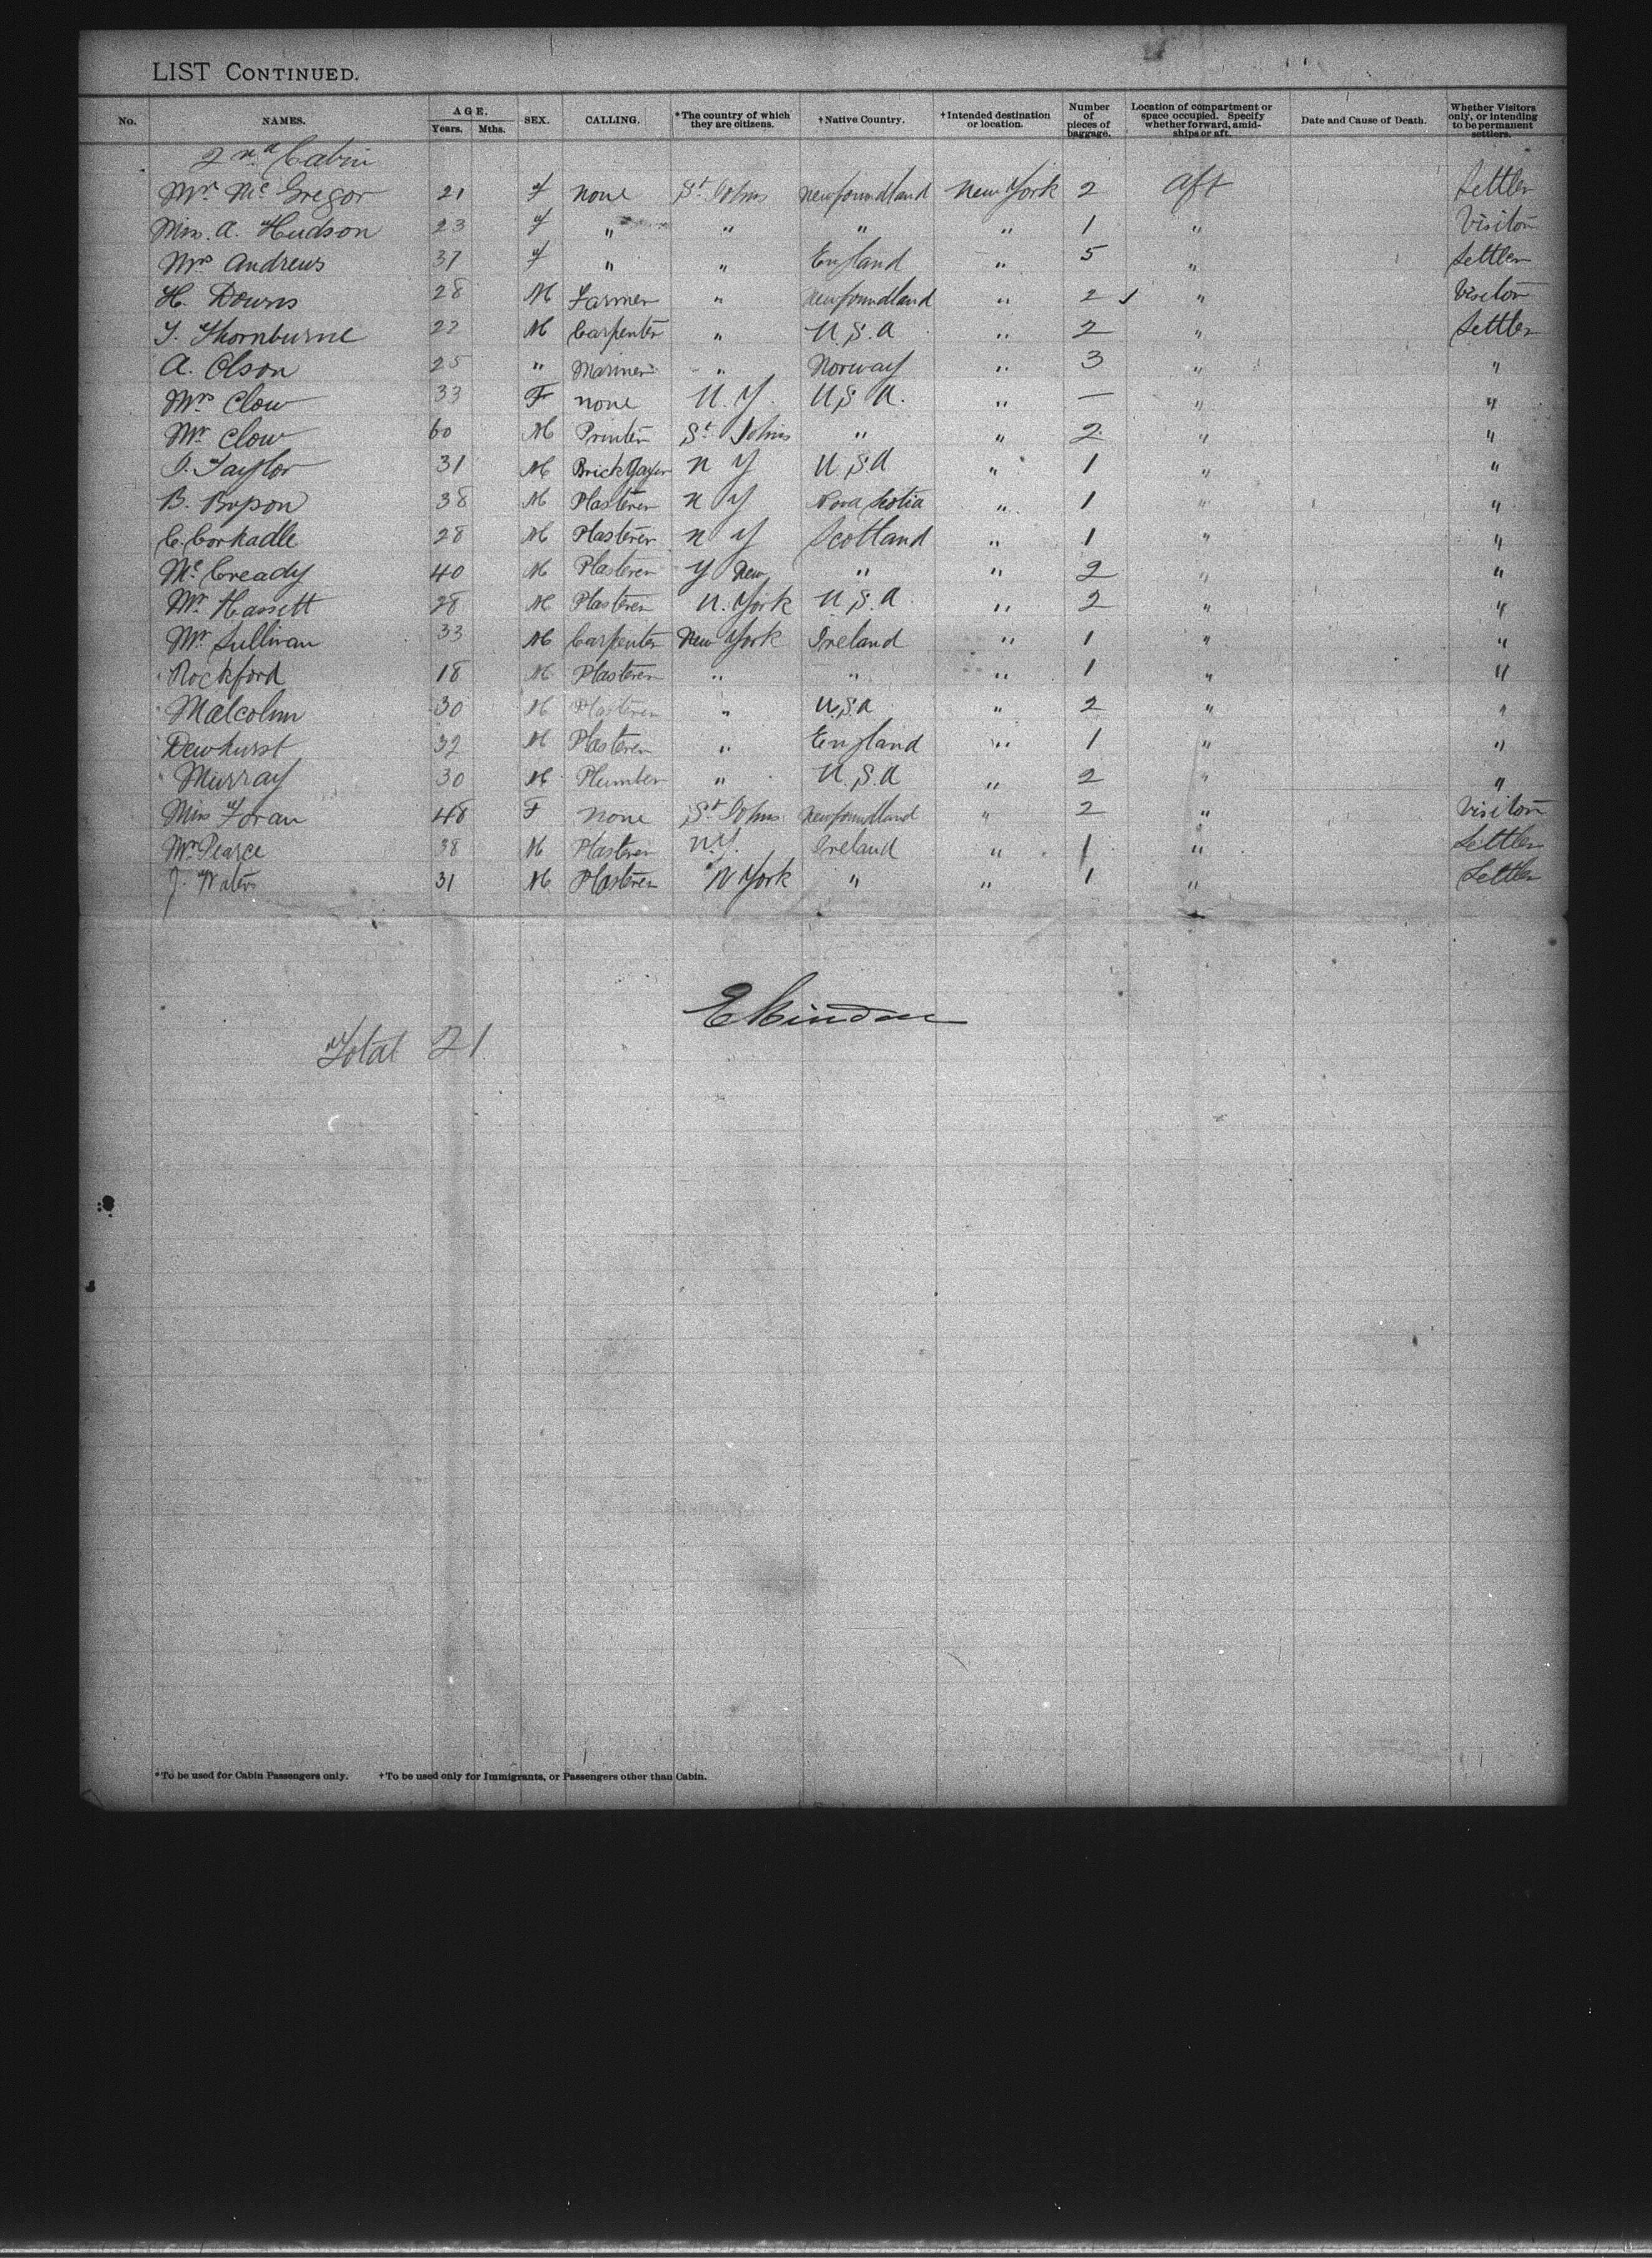 LIST CONTINUED.
No. NAMES. AGE. Years. Mths. SEX. CALLING. *The country of which they are citizens. †Native Country. †Intended destination or location. Number of pieces of baggage. Location of compartment or space occupied. Specify whether forward, amidships or aft. Date and Cause of Death. Whether Visitors only, or intending to be permanent settlers.
2nd Cabin
Mrs McGregor 21 f none St Johns Newfoundland New York 2 aft Settler
Miss. A. Hudson 23 f " " " " 1 " Visitor
Mrs Andrews 37 f " " England " 5 " Settler
H. Downs 28 M Farmer " Newfoundland " 2 " Visitor
T. Thornburne 22 M Carpenter " U.S.A " 2 " Settler
A. Olson 25 " Mariner " Norway " 3 " "
Mrs Clow 33 F none N. Y. U.S.A. " — " "
Mr Clow 60 M Printer St Johns " " 2 " "
Taylor 31 M Bricklayer N Y U.S.A " 1 " "
B. 38 M Plasterer N Y Nova Scotia " 1 " "
C. Corkadle 28 M Plasterer N Y Scotland " 1 " "
McCready 40 M Plasterer Y New " " 2 " "
Mr. Hassett 28 M Plasterer N. York U.S.A " 2 " "
Mr Sullivan 33 M Carpenter New York Ireland " 1 " "
Rockford 18 M Plasterer " " " 1 " "
Malcolm 30 M Plasterer " U.S.A " 2 " "
Dewhurst 32 M Plasterer " England " 1 " "
" Murray 30 M Plumber " U.S.A " 2 " "
Miss Foran 48 F none St Johns Newfoundland " 2 " Visitor
Mr Pearce 38 M Plasterer N.Y. Ireland " 1 " Settler
J. Waters 31 M Plasterer N York " " 1 " Settler
Total 21
*To be used for Cabin Passengers only. †To be used only for Immigrants, or Passengers other than Cabin.